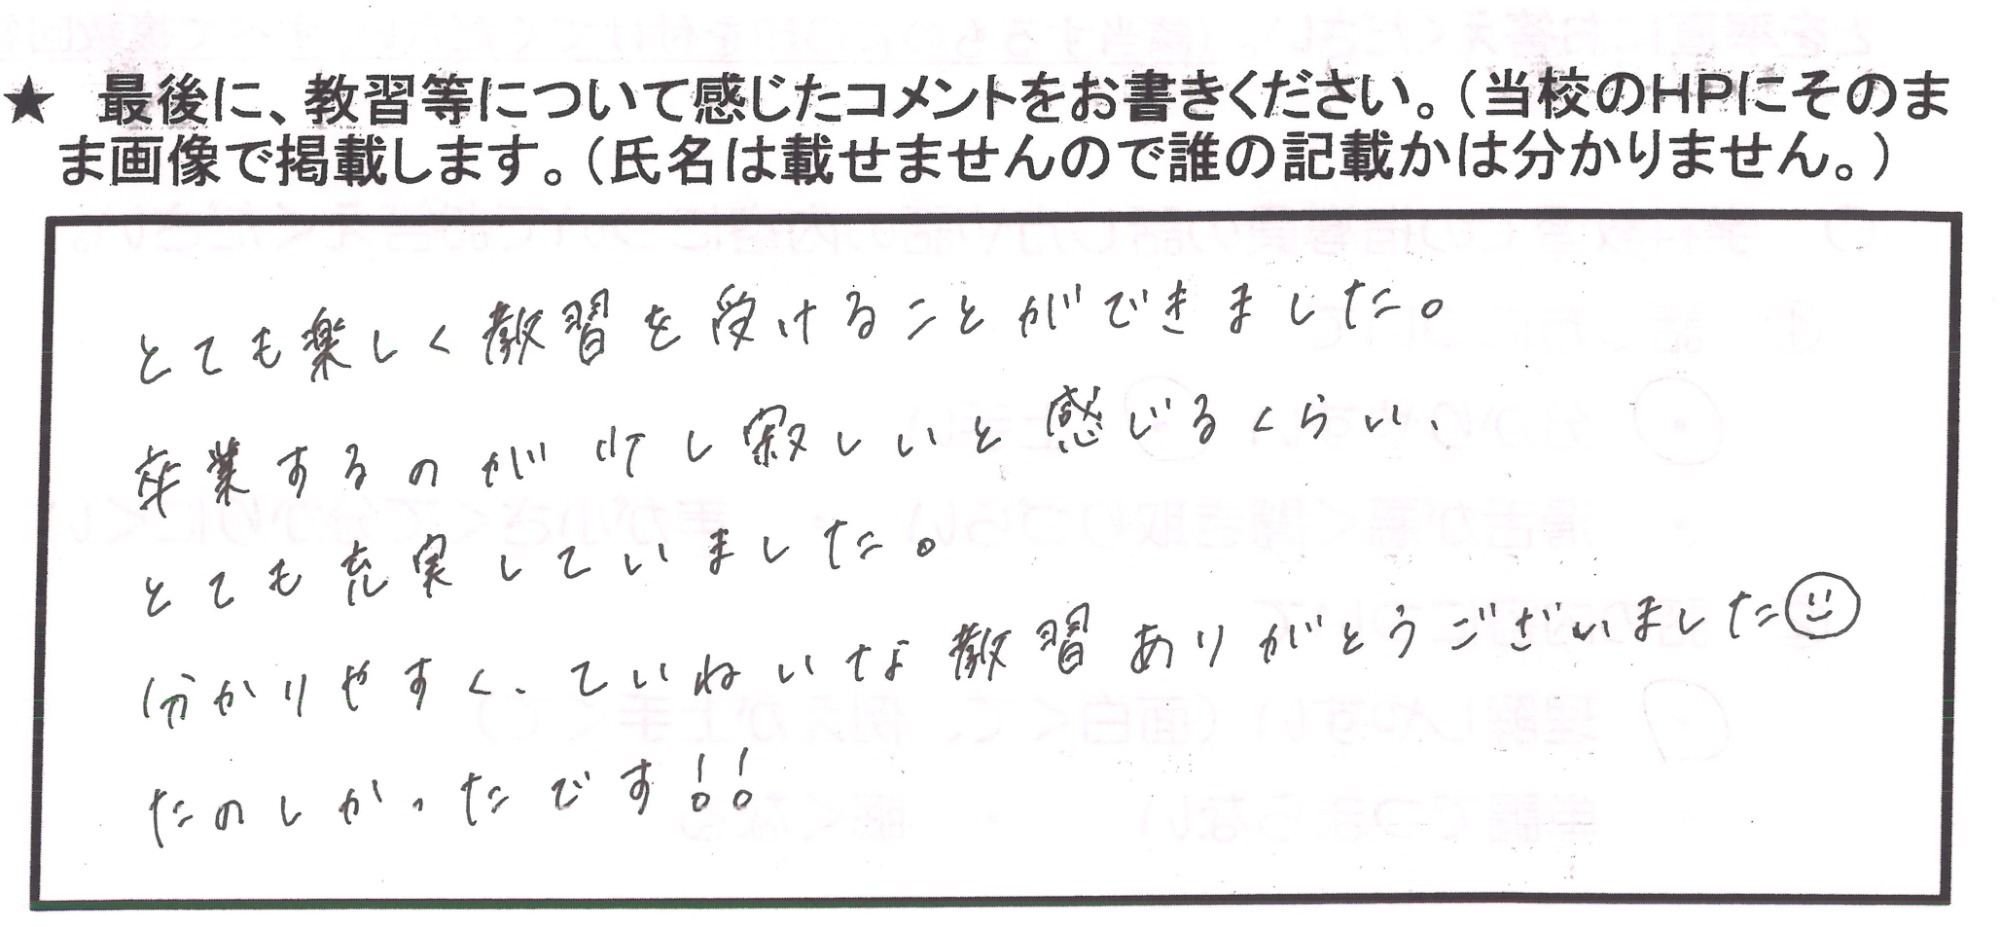 ★ 最後に、教習等について感じたコメントをお書きください。（当校のHPにそのま
ま画像で掲載します。（氏名は載せませんので誰の記載かは分かりません。）
とても楽しく教習を受けることができました。
卒業するのが少し寂しいと感じるくらい、
とても充実していました。
分かりやすく、ていねいな教習ありがとうございました
たのしかったです!!